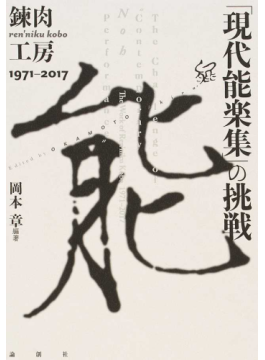 錬肉
工房
ren'niku kobo
1971–2017
「現代能楽集」の挑戦
能
The Challenge of
Contemporary
Noh
Performance
岡本 章
編著
論創社